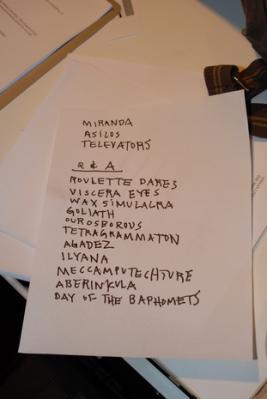 MIRANDA
ASILOS
TELEVATORS
Q & A
ROULETTE DARES
VISCERA EYES
WAX SIMULACRA
GOLIATH
OUROSBOROUS
TETRAGRAMMATON
AGADEZ
ILYANA
MECCAMPUTECHTURE
ABERINKULA
DAY OF THE BAPHOMETS